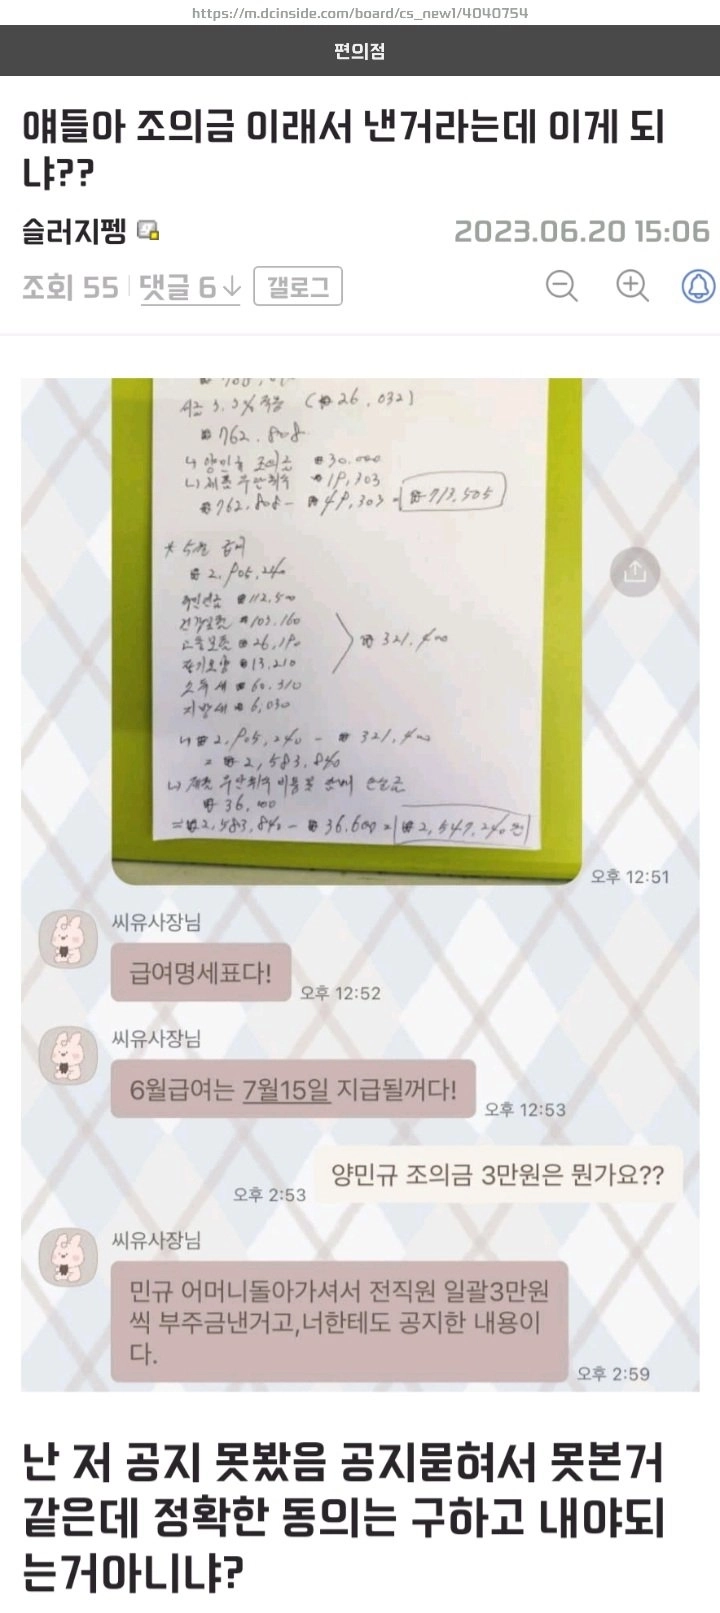 https://m.dcinside.com/board/cs_new1/4040754
편의점
얘들아 조의금 이래서 낸거라는데 이게 되
냐??
슬러지펭
2023.06.20 15:06
조회 55 댓글 6↓ 갤로그
(₩26.032)
₩762.808
조의금 ₩30.000
₩19,303
₩762.808 - ₩49,303 = ₩713.505
* 5월 급여
₩2,905,240
국민연금 ₩112,500
건강보험 ₩103.160
고용보험 ₩26,190
장기요양 ₩13,210
₩321,400
소득세 ₩60.310
지방세 ₩6,030
↳ ₩2,905,240 - ₩321,400
= ₩2,583,840
₩36,600
=₩2,583,840 - ₩36.600 = ₩2,547,240원
오후 12:51
씨유사장님
급여명세표다!
오후 12:52
씨유사장님
6월급여는 7월15일 지급될꺼다!
오후 12:53
양민규 조의금 3만원은 뭔가요??
오후 2:53
씨유사장님
민규 어머니돌아가셔서 전직원 일괄3만원
씩 부주금낸거고,너한테도 공지한 내용이
다.
오후 2:59
난 저 공지 못봤음 공지묻혀서 못본거
같은데 정확한 동의는 구하고 내야되
는거아니냐?